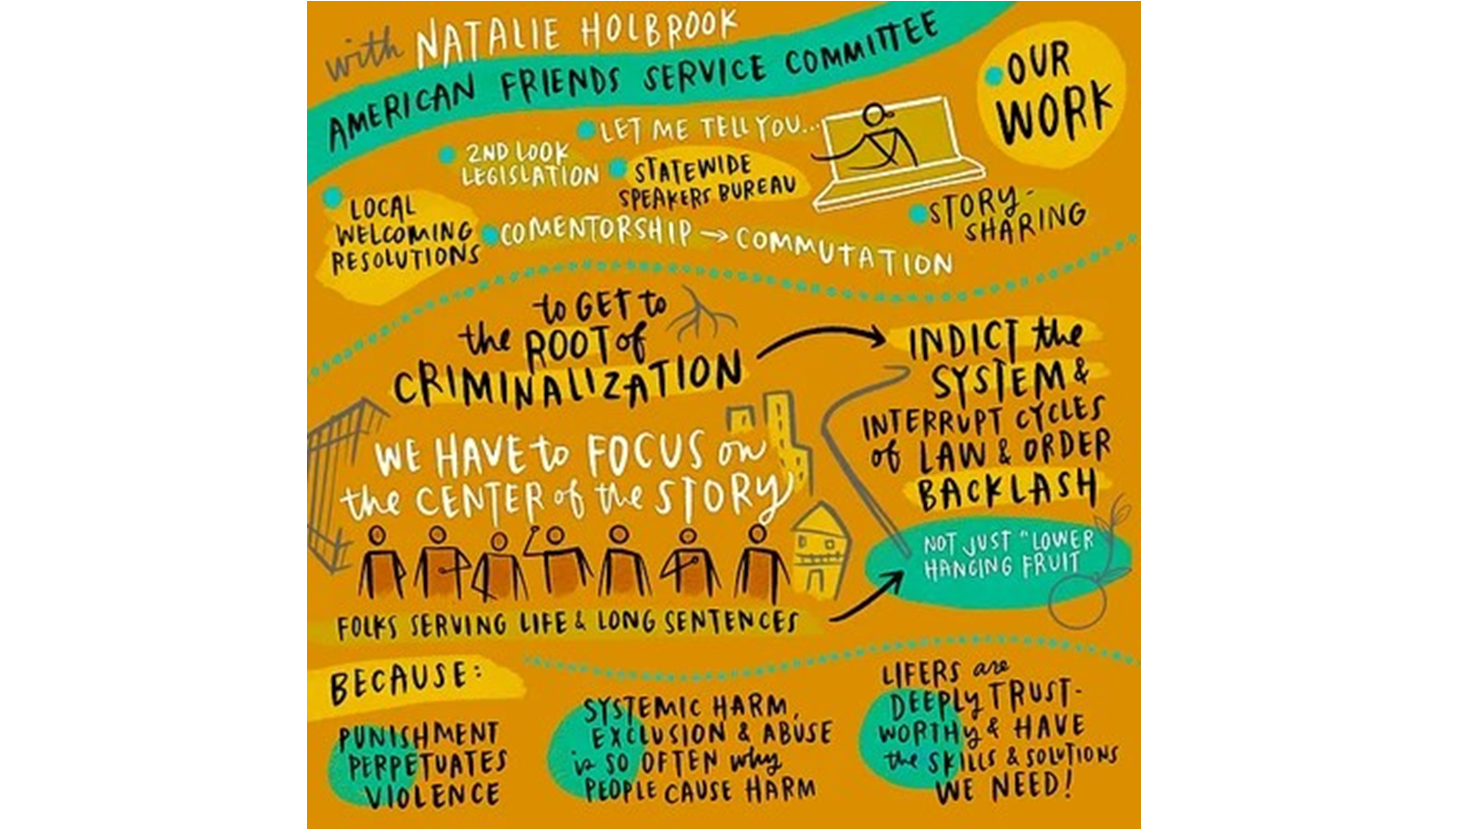 with NATALIE HOLBROOK
AMERICAN FRIENDS SERVICE COMMITTEE
OUR
WORK
LET ME TELL YOU...
2ND LOOK
LEGISLATION
STATEWIDE
SPEAKERS BUREAU
LOCAL
WELCOMING
RESOLUTIONS
COMENTORSHIP → COMMUTATION
STORY-
SHARING
to GET to
the ROOT of
CRIMINALIZATION
INDICT the
SYSTEM &
INTERRUPT CYCLES
of LAW & ORDER
BACKLASH
WE HAVE to FOCUS on
the CENTER of the STORY
NOT JUST "LOWER
HANGING FRUIT
FOLKS SERVING LIFE & LONG SENTENCES
BECAUSE:
PUNISHMENT
PERPETUATES
VIOLENCE
SYSTEMIC HARM,
EXCLUSION & ABUSE
is SO OFTEN why
PEOPLE CAUSE HARM
LIFERS are
DEEPLY TRUST-
WORTHY & HAVE
the SKILLS & SOLUTIONS
WE NEED!